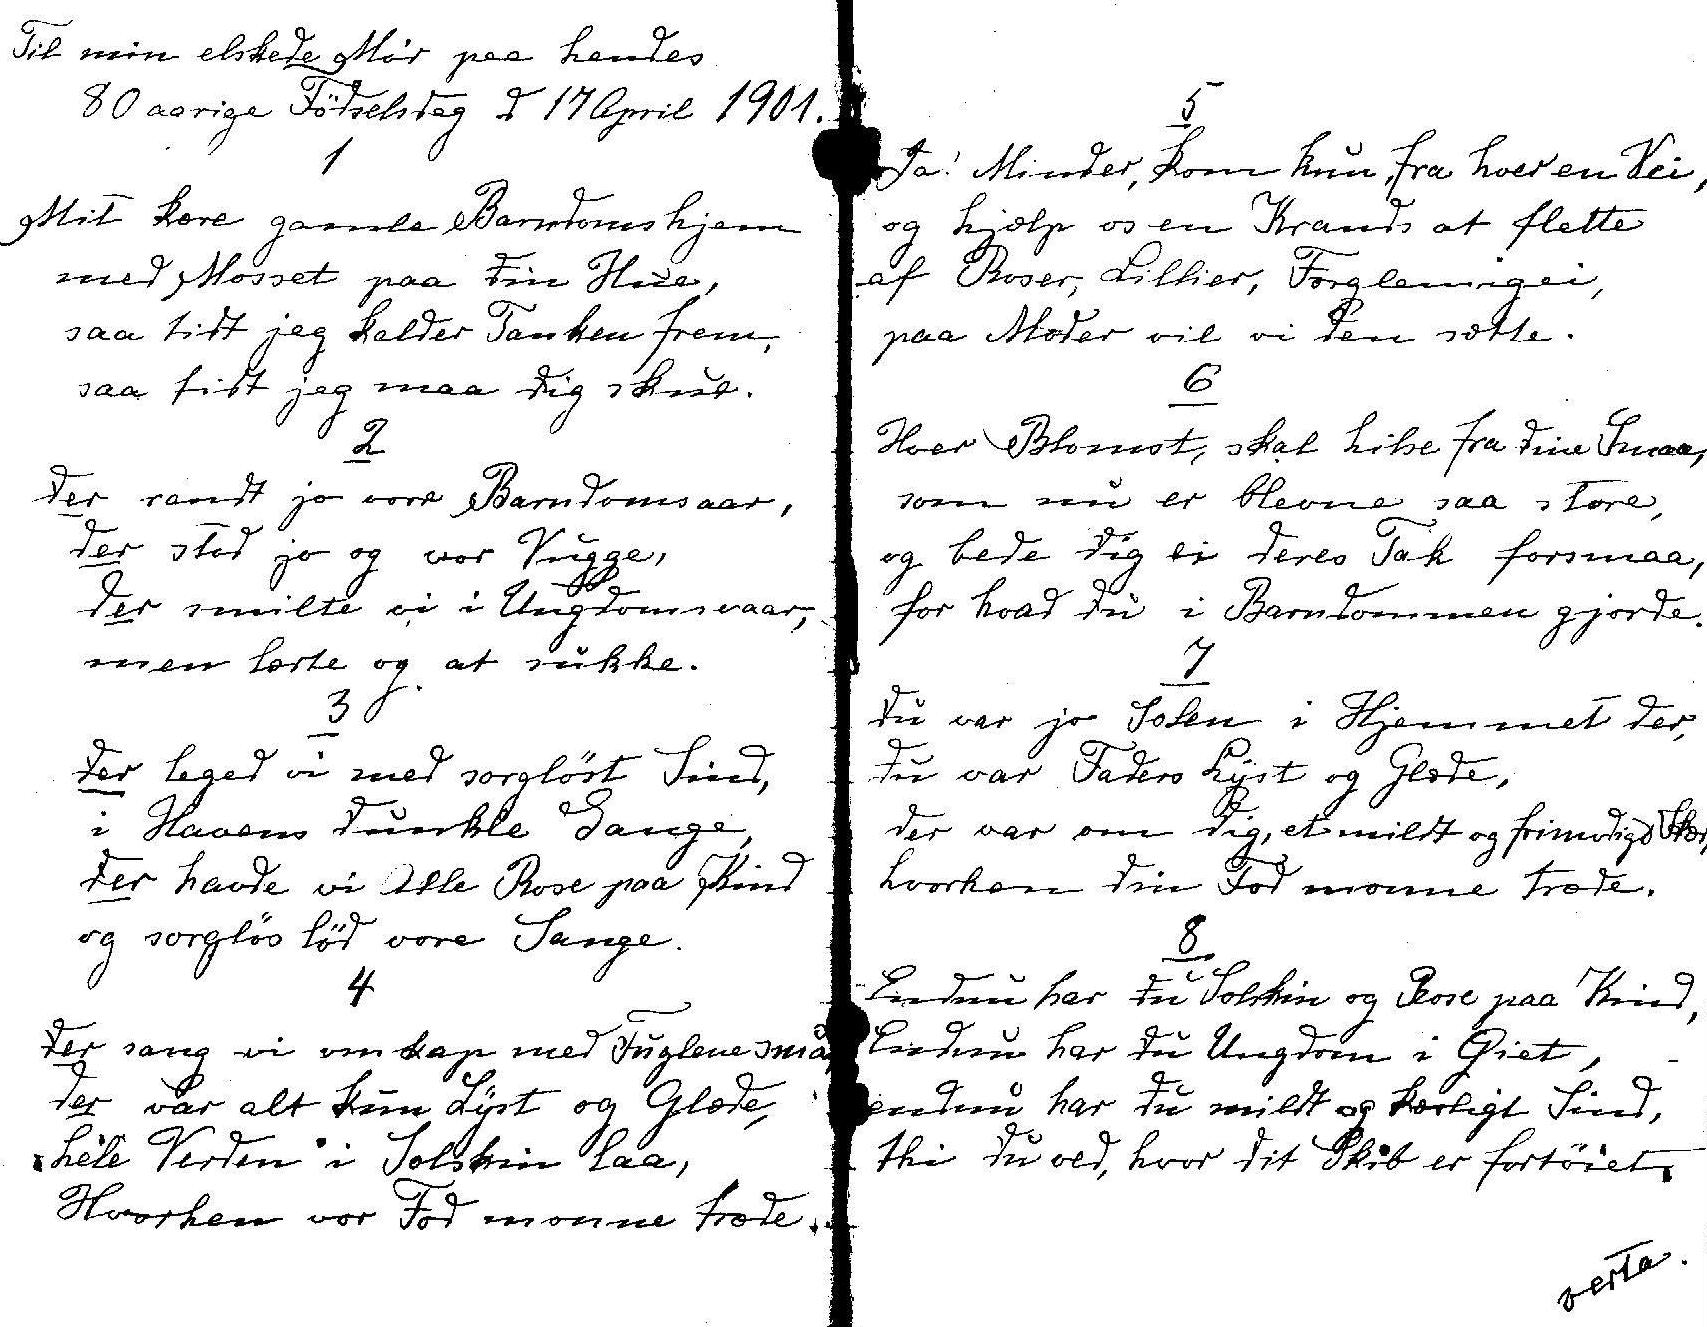 Til min elskede Mór paa hendes
80 aarige Födselsdag d 17 April 1901.
1
Mit kære gamle Barndomshjem
med Mosset paa din Hue,
saa tidt jeg kalder Tanken frem,
saa tidt jeg maa dig skue.
2
der randt jo vore Barndomsaar,
der stod jo og vor Vugge,
der smilte vi i Ungdomsvaar,
men lærte og at sukke.
3
der leged vi med sorglöst Sind,
i Havens dunkle Gange,
der havde vi Alle Rose paa Kind
og sorglös löd vore Sange.
4
der sang vi omkap med Fuglene små,
der var alt kun Lyst og Glæde,
hele Verden i Solskin laa,
Hvorhen vor Fod monne træde.
5
Ja! Minder, kom kun, fra hver en Vei,
og hjælp os en Krands at flette
af Roser, Lillier, Forglemmigei,
paa Moder vil vi den sætte.
6
Hver Blomst, skal hilse fra dine Smaa,
som nu er blevne saa store,
og bede dig ei deres Tak forsmaa,
for hvad du i Barndommen gjorde.
7
du var jo Solen i Hjemmet der,
du var Faders Lyst og Glæde,
der var om dig, et mildt og frimodigt Skær,
hvorhen din Fod monne træde.
8
Endnu har du Solskin og Rose paa Kind,
Endnu har du Ungdom i Øiet,
endnu har du mildt og kærligt Sind,
thi du ved, hvor dit Skib er fortöiet.
verta.